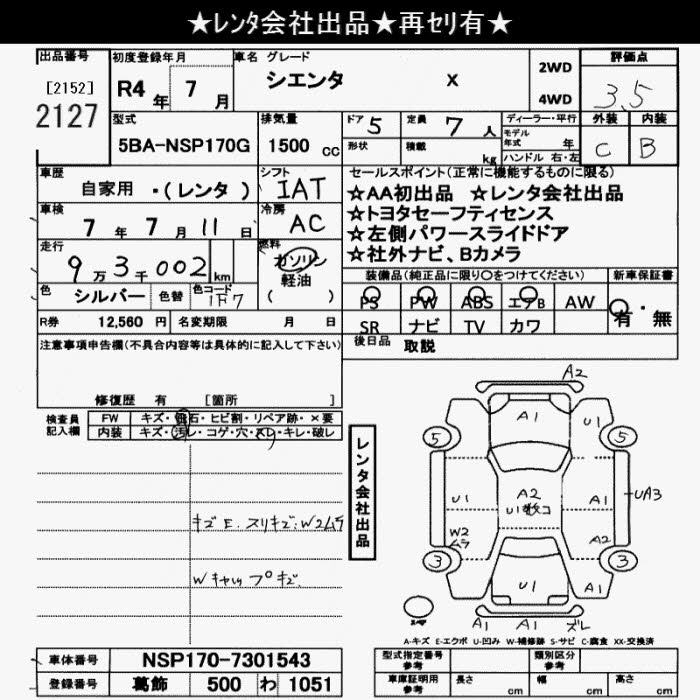 ★ﾚﾝﾀ会社出品★再ｾﾘ有★
出品番号
[2152]
2127
初度登録年月
R4年 7月
車名 グレード
シエンタ X
2WD
4WD
評価点
3.5
外装 内装
C B
型式
5BA-NSP170G
排気量
1500 cc
ドア 5
形状
定員 7人
積載 kg
ディーラー・平行
モデル年式 年
ハンドル 右・左
車歴
自家用 ・(レンタ)
シフト
IAT
車検
7年 7月 11日
冷房
AC
走行
9万3千002 km
燃料
ガソリン
軽油
( )
色
シルバー
色替
色コード
1F7
セールスポイント(正常に機能するものに限る)
☆AA初出品 ☆レンタ会社出品
☆トヨタセーフティセンス
☆左側パワースライドドア
☆社外ナビ、Bカメラ
装備品(純正品に限り○をつけてください)
新車保証書
PS PW ABS エアB AW
有・無
SR ナビ TV カワ
後日品 取説
R券 12,560 円
名変期限 月 日
注意事項申告欄(不具合内容等は具体的に記入して下さい)
修復歴 有 [箇所 ]
検査員
記入欄
FW キズ・飛石・ヒビ割・リペア跡・×要
内装 キズ・汚レ・コゲ・穴・スリ・キレ・破レ
キズE.スリキズ:W2ムラ
Wキャップキズ.
レンタ会社出品
A2
A1
U1
5
5
U1
A2
U1数コ
A1
UA3
W2
ムラ
A2
3
3
U1
A1
A1
A1
A1
ズレ
A-キズ E-エクボ U-凹み W-補修跡 S-サビ C-腐食 XX-交換済
車体番号 NSP170-7301543
登録番号 葛飾 500 わ 1051
型式指定番号
参考
類別区分
参考
車庫証明用
参考
長さ cm
幅 cm
高さ cm